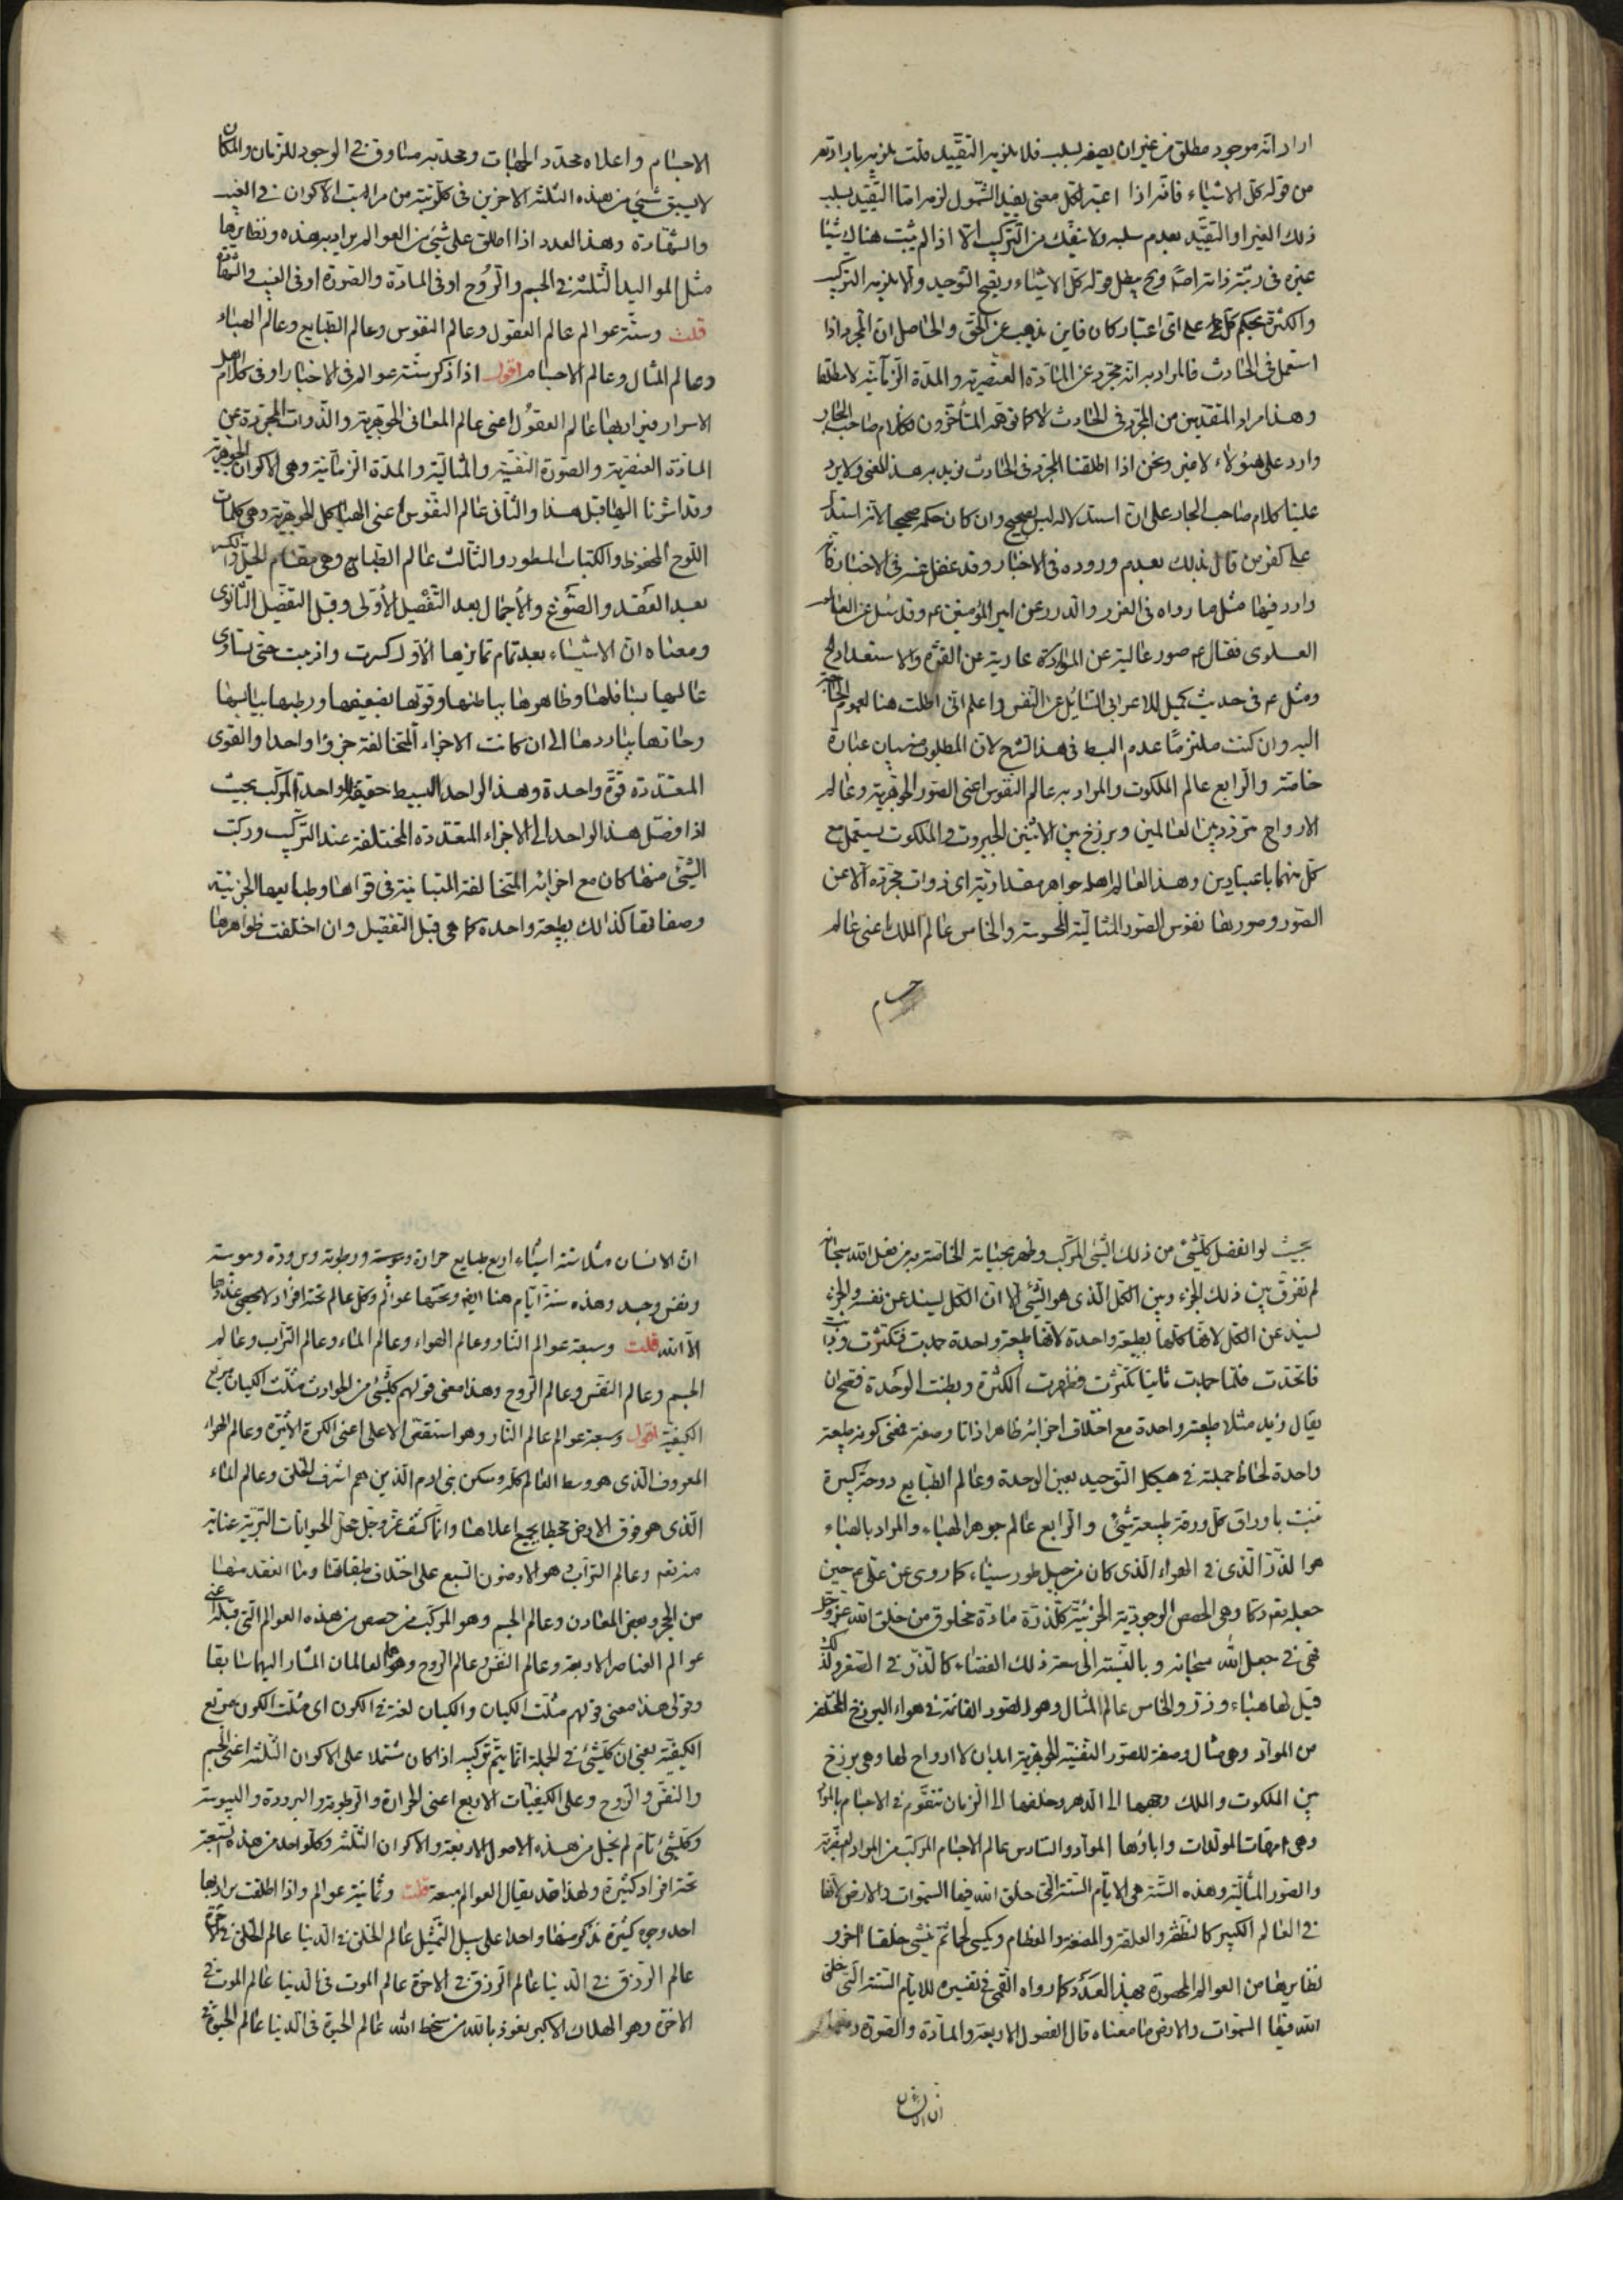 اراد انه موجود مطلق من غير ان يصفه بسلب فلا يلزمه التقييد قلت يلزمه بارادته
من قوله كل الاشياء فانه اذا اعتبر لكل معنى يفيد الشمول لزمه اما التقييد بسلب
ذلك الغير او التقيد بعدم سلبه ولا ينفك من التركيب الا اذا لم يثبت هناك شيئا
غيره في رتبة ذاته اصلا وح يبطل قوله كل الاشياء ويصح التوحيد والا يلزمه التركيب
والكثرة بحكم على اى اعتبار كان فاين يذهب عن الحق والحاصل ان المجرد اذا
استعمل في الحادث فالمراد به انه مجرد عن المادة العنصرية والمدة الزمانية لا مطلقا
وهذا مراد المتقدمين من المجرد في الحادث لا كما توهمه المتأخرون فكلام صاحب البحار
وارد على هؤلاء لا منه ونحن اذا اطلقنا المجرد في الحادث نريد به هذا المعنى ولا يرد
علينا كلام صاحب البحار على ان استدلاله ليس بصحيح وان كان حكمه صحيحا لانه استدل
على كفر من قال بذلك بعدم وروده في الاخبار وقد غفل عنه في الاخبار فانه
وارد فيها مثل ما رواه في الغرر والدرر عن امير المؤمنين ع وقد سئل عن العالم
العلوى فقال ع صور عالية عن المواد عارية عن القوة والاستعداد الخ
ومثله ع في حديث كميل للاعرابى السائل عن النفس واعلم انى اطلت هنا لعموم الحاجة
اليه وان كنت ملتزما عدم البسط في هذا الشرح لان المطلوب منه بيان عبارة
خاصته والرابع عالم الملكوت والمراد به عالم النفوس اعنى الصور الجوهرية وعالم
الارواح متردد بين العالمين وبرزخ بين الاثنين الجبروت والملكوت يستعمل مع
كل منهما باعتبارين وهذا العالم اهله جواهر مقدارية اى ذوات مجردة الا عن
الصور وصورها نفوس الصور المثالية المحسوسة والخامس عالم الملك اعنى عالم
الاجسام
الاجسام واعلاه محدد الجهات ومحدبه مساوق في الوجود للزمان والمكان
لا يسبق شيئ من هذه الثلثة الاخرين في كل رتبة من مراتب الاكوان في الغيب
والشهادة وهذا العدد اذا اطلق على شيئ من العوالم يراد به هذه ونظايرها
مثل المواليد الثلثة في الجسم والروح او في المادة والصورة او في الغيب والشهادة
قلت وستة عوالم عالم العقول وعالم النفوس وعالم الطبايع وعالم الهباء
وعالم المثال وعالم الاجسام اقول اذا ذكر ستة عوالم في الاخبار او في كلام اهل
الاسرار فيراد بها عالم العقول اعنى عالم المعانى الجوهرية والذوات المجردة عن
المادة العنصرية والصورة النفسية والمثالية والمدة الزمانية وهي الاكوان الجوهرية
وقد اشرنا اليها قبل هذا والثانى عالم النفوس اعنى الهياكل الجوهرية وهي كلمات
اللوح المحفوظ والكتاب المسطور والثالث عالم الطبايع وهي مقام الحل والكسر
بعد العقد والصوغ والاجمال بعد التفصيل الاولى وقبل التفصيل الثانوى
ومعناه ان الاشياء بعد تمام تمايزها الاول كسرت واذيبت حتى تساوى
عاليها بسافلها وظاهرها بباطنها وقويها بضعيفها ورطبها بيابسها
وحارها بباردها الى ان كانت الاجزاء المتخالفة جزؤا واحدا والقوى
المتعددة قوة واحدة وهذا الواحد البسيط حقيقة الواحد المركب بحيث
اذا فصل هذا الواحد الى الاجزاء المتعددة المختلفة عند التركيب وركبت
الشيئ منها كان مع اجزائه المتخالفة المتباينة في قواها وطبايعها الجزئية
وصفاتها كذلك بطبيعة واحدة كما هي قبل التفصيل وان اختلفت ظواهرها
بحيث لو انفصل كلشيئ من ذلك الشيئ المركب وظهر بجناية الخاصة به من فعل الله سبحانه
لم تفرق بين ذلك الجزء وبين الكل الذى هو الشيئ الا ان الكل يسند عن نفسه والجزء
يسند عن الكل لانها كلها بطبيعة واحدة لانها طبيعة واحدة جمدت فتكثرت وذابت
فاتحدت فلما جمدت ثانيا تكثرت فظهرت الكثرة وبطنت الوحدة فصح ان
يقال زيد مثلا طبيعة واحدة مع اختلاف اجزائه ظاهرا ذاتا وصفة فمعنى كونه طبيعة
واحدة لحاظ جملته في هيكل التوحيد بعين الوحدة وعالم الطبايع دوحة كبيرة
تنبت باوراق كل ورقة طبيعة شيئ والرابع عالم جوهر الهباء والمراد بالهباء
هو الذر الذى في الهواء الذى كان من جبل طور سيناء كما روى عن على ع حين
جعله تع دكا وهي الحصص الوجودية الجزئية كل ذرة مادة مخلوق من خلق الله عز وجل
فهي في جعل الله سبحانه وبالنسبة الى سعة ذلك الفضاء كالذر في الصغر ولذلك
قيل لها هباء وذر والخامس عالم المثال وهو الصور القائمة في هواء البرزخ المختلفة
من المواد وهي مثال وصفة للصور النفسية الجوهرية ابدان لا ارواح لها وهي برزخ
بين الملكوت والملك وجهها الى الدهر وخلفها الى الزمان تتقوم في الاجسام بالمواد
وهي امهات المولدات واباؤها المواد والسادس عالم الاجسام المركبة من المواد العنصرية
والصور المثالية وهذه الستة هي الايام الستة التى خلق الله فيها السموات والارض لانها
في العالم الكبير كالنطفة والعلقة والمضغة والعظام ويكسى لحما ثم ينشئ خلقا اخر و
نظايرها من العوالم المحصورة بهذا العدد كما رواه القمى في تفسيره للايام الستة التى خلق
الله فيها السموات والارض ما معناه قال الفصول الاربعة والمادة والصورة
ان الانسان
ان الانسان مثلا ستة اشياء اربع طبايع حرارة ويبوسة ورطوبة وبرودة وموتة
ونفس وجسد وهذه ستة ايام هنا ايضا وتحتها عوالم وكل عالم تحته افراد لا يحصى عددها
الا الله قلت وسبعة عوالم النار وعالم الهواء وعالم الماء وعالم التراب وعالم
الجسم وعالم النفس وعالم الروح وهذا معنى قولهم كلشيئ من الحوادث مثلث الكيان مربع
الكيفية اقول وسبعة عوالم عالم النار وهو استقص الاعلى اعنى الكرة الاثيرة وعالم الهواء
المعروف الذى هو وسط العالم كله ومسكن بنى ادم الذين هم اشرف الخلق وعالم الماء
الذى هو فوق الارض محيطا بجميع اعلاها وانما كشف عز وجل محل الحيوانات البرية عناية
منه تعم وعالم التراب هو الارضون السبع على اختلاف طبقاتها وما انعقد منها
من الحجر وبعض المعادن وعالم الجسم وهو المركب من حصص من هذه العوالم التى قبله اعنى
عوالم العناصر الاربعة وعالم النفس وعالم الروح وهما العالمان المشار اليهما سابقا
وقولى هذا معنى قولهم مثلث الكيان والكيان لغة في الكون اى مثلث الكون مربع
الكيفية يعنى ان كلشيئ في الجملة انما يتم تركيبه اذا كان مشتملا على الاكوان الثلثة اعنى الجسم
والنفس والروح وعلى الكيفيات الاربع اعنى الحرارة والرطوبة والبرودة واليبوسة
وكلشيئ تام لم يخل من هذه الاصول الاربعة والاكوان الثلثة وكل واحد من هذه السبعة
تحته افراد كثيرة ولهذا قد يقال العوالم سبعة قلت وثمانية عوالم واذا اطلقت يراد بها
احد وجوه كثيرة نذكر منها واحدا على سبيل التمثيل عالم الخلق في الدنيا عالم الخلق في الاخرة
عالم الرزق في الدنيا عالم الرزق في الاخرة عالم الموت في الدنيا عالم الموت في
الاخرة وهو الهلاك الاكبر نعوذ بالله من سخط الله عالم الحيوة في الدنيا عالم الحيوة في